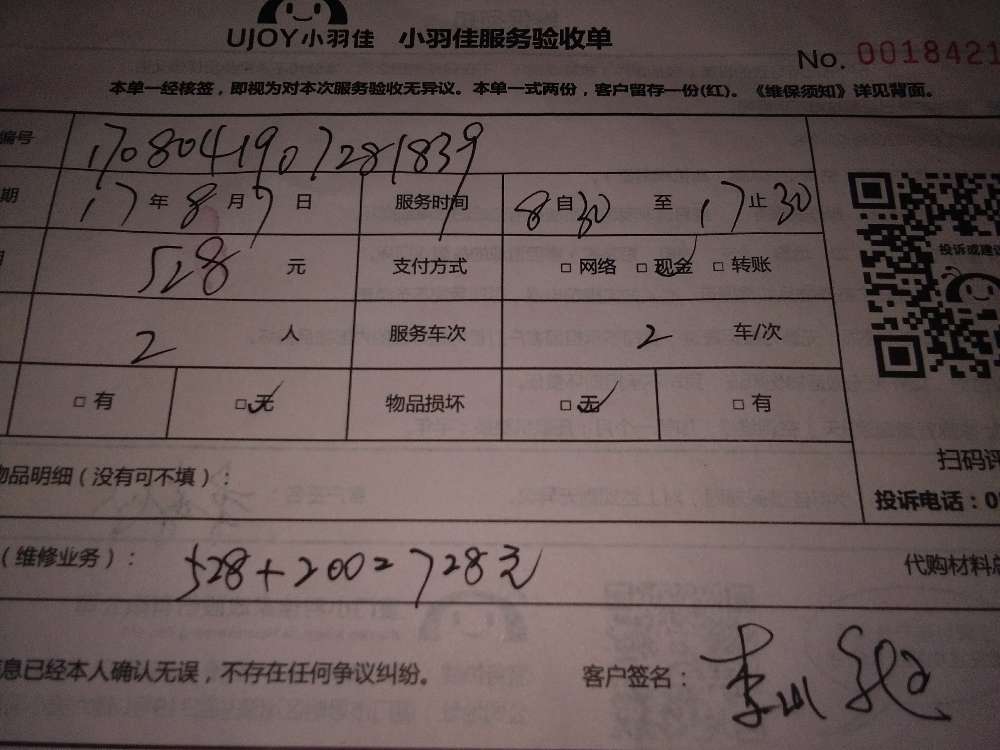 UJOY小羽佳 小羽佳服务验收单
No. 0018421
本单一经核签，即视为对本次服务验收无异议。本单一式两份，客户留存一份(红)。《维保须知》详见背面。
编号 1708041907281839
期 17年8月7日 服务时间 8自30至17止30
528元 支付方式 □网络 □现金 □转账
2人 服务车次 2车/次
□有 □无 物品损坏 □无 □有
投诉或建议
扫码评
物品明细（没有可不填）：
投诉电话：0
（维修业务）： 528+200=728元 代购材料总
信息已经本人确认无误，不存在任何争议纠纷。 客户签名：